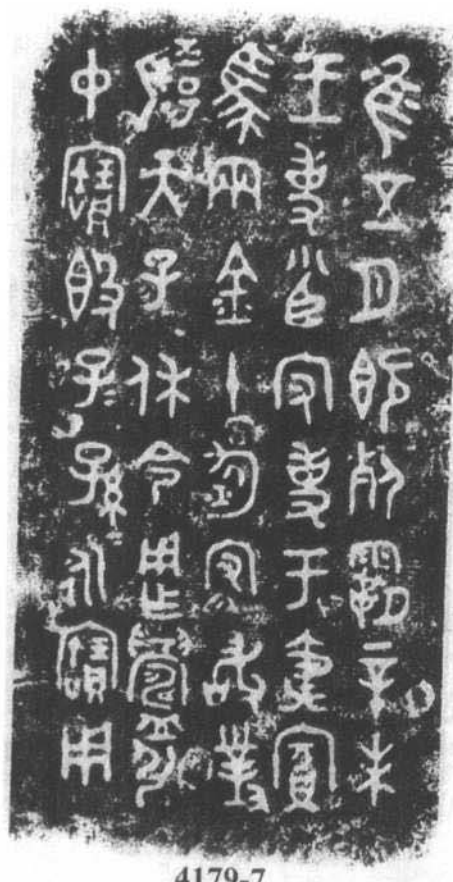 隹五月既死霸辛未
王事小臣守事于夷賓
馬兩金十鈞守敢對
揚天子休令用乍鑄引
中寶𣪘子子孫孫永寶用
4179-7